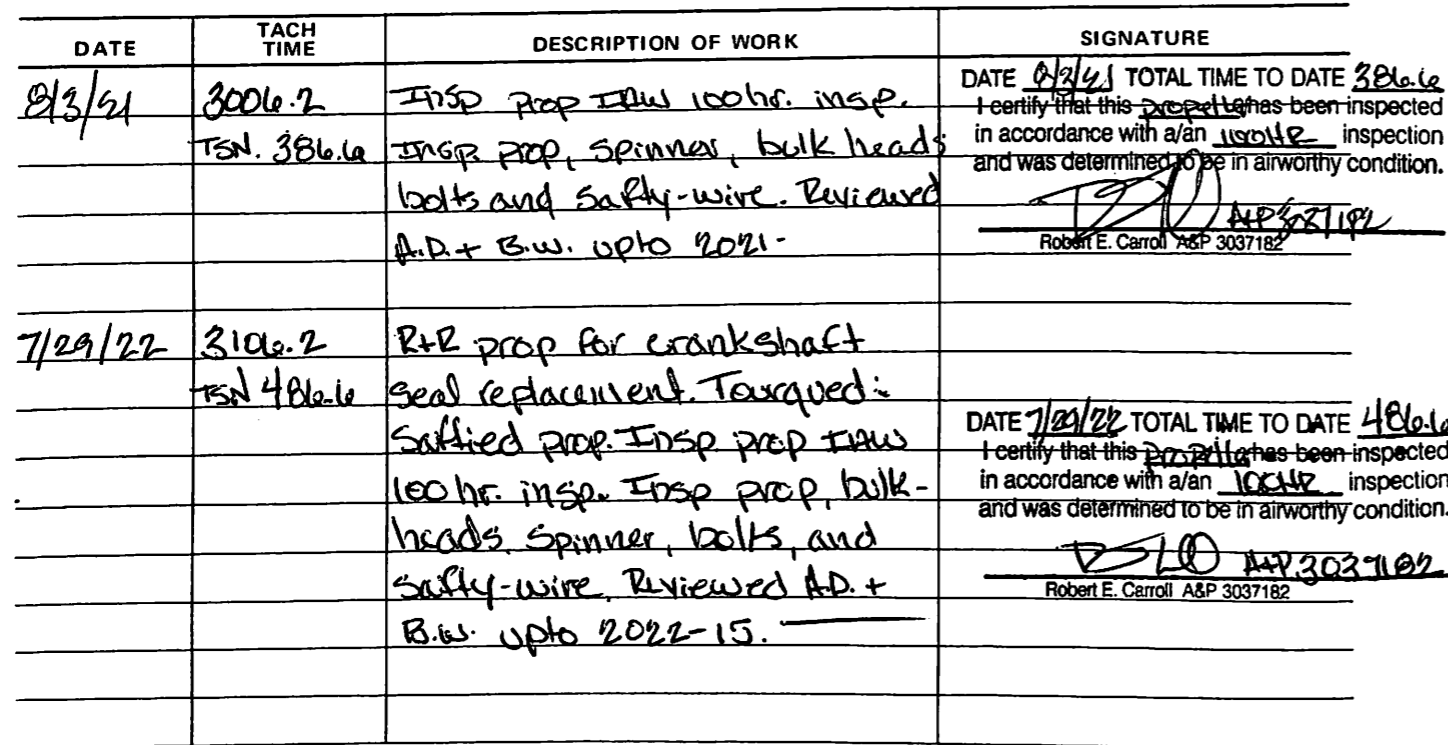 DATE TACH TIME DESCRIPTION OF WORK SIGNATURE
8/3/21 3006.2 Insp prop IAW 100hr. insp.
TSN. 386.6 Insp. prop, spinner, bulk heads
bolts and safty-wire. Reviewed
A.D. + B.W. upto 2021-
DATE 8/3/21 TOTAL TIME TO DATE 386.6
I certify that this propeller has been inspected
in accordance with a/an 100HR inspection
and was determined to be in airworthy condition.
A+P 3037182
Robert E. Carroll A&P 3037182
7/29/22 3106.2 R+R prop for crankshaft
TSN 486.6 seal replacement. Tourqued :
Saftied prop. Insp prop IAW
100 hr. insp. Insp prop, bulk-
heads, spinner, bolts, and
safty-wire. Reviewed A.D. +
B.W. upto 2022-15.
DATE 7/29/22 TOTAL TIME TO DATE 486.6
I certify that this propeller has been inspected
in accordance with a/an 100HR inspection
and was determined to be in airworthy condition.
A+P 3037182
Robert E. Carroll A&P 3037182